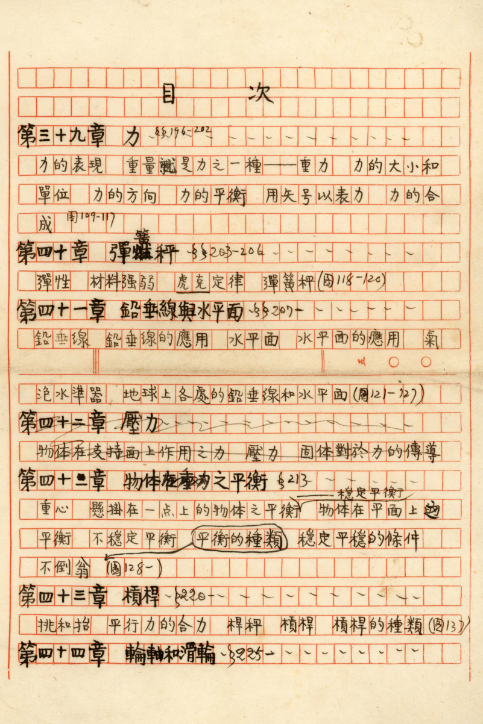 目 次
第三十九章 力 §§196-202
力的表現 重量就是力之一種——重力 力的大小和
單位 力的方向 力的平衡 用矢号以表力 力的合
成 圖109-117
第四十章 彈簧秤 §§203-206
彈性 材料强弱 虎克定律 彈簧秤(圖118-120)
第四十一章 鉛垂線與水平面 §§207-
鉛垂線 鉛垂線的應用 水平面 水平面的應用 氣
泡水準器 地球上各處的鉛垂線和水平面(圖121-127)
第四十二章 壓力
物体在支持面上作用之力 壓力 固体對於力的傳導
第四十二章 物体在重力之平衡 §213
穩定平衡
重心 懸掛在一点上的物体之平衡 物体在平面上的
平衡 不穩定平衡 平衡的種類 穩定平穩的條件
不倒翁 (圖128-)
第四十三章 槓桿 §220-
挑和抬 平行力的合力 桿秤 槓桿 槓桿的種類(圖13
第四十四章 輪軸和滑輪 §225-